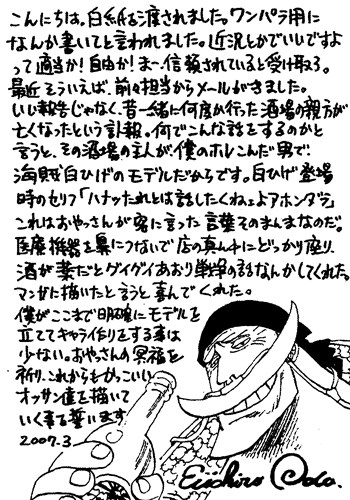 こんにちは。白紙を渡されました。ワンパラ用に
なんか書いてと言われました。近況とかでいいですよ
って適当か!自由か!まー信頼されていると受け取ろう。
最近そういえば、前々担当からメールがきました。
いい報告じゃなく、昔一緒に何度か行った酒場の親方が
亡くなったという訃報。何でこんな話をするのかと
言うと、その酒場の主人が、僕のホレこんだ男で、
海賊白ひげのモデルだからです。白ひげ登場
時のセリフ「ハナッたれとは話したくねェよアホンダラ」
これはおやっさんが客に言った言葉そのまんまなのだ。
医療機器を鼻につないで店の真ん中にどっかり座り、
酒が薬だとグイグイあおり戦争の話なんかしてくれた。
マンガに描いたと言うと喜んでくれた。
僕がここまで明確にモデルを
立ててキャラ作りをする事は
少ない。おやっさんの冥福を
祈り、これからもかっこいい
オッサン達を描いて
いく事を誓います
2007.3.
Eiichiro Oda.